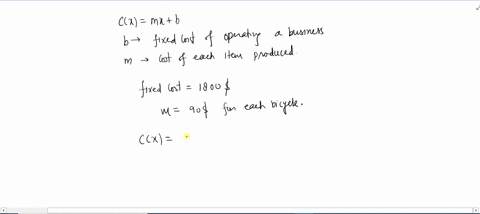 C(x) = mx + b
b → fixed cost of operating a business
m → cost of each item produced.
fixed cost = 1800 $
m = 90$ for each bicycle.
C(x) =